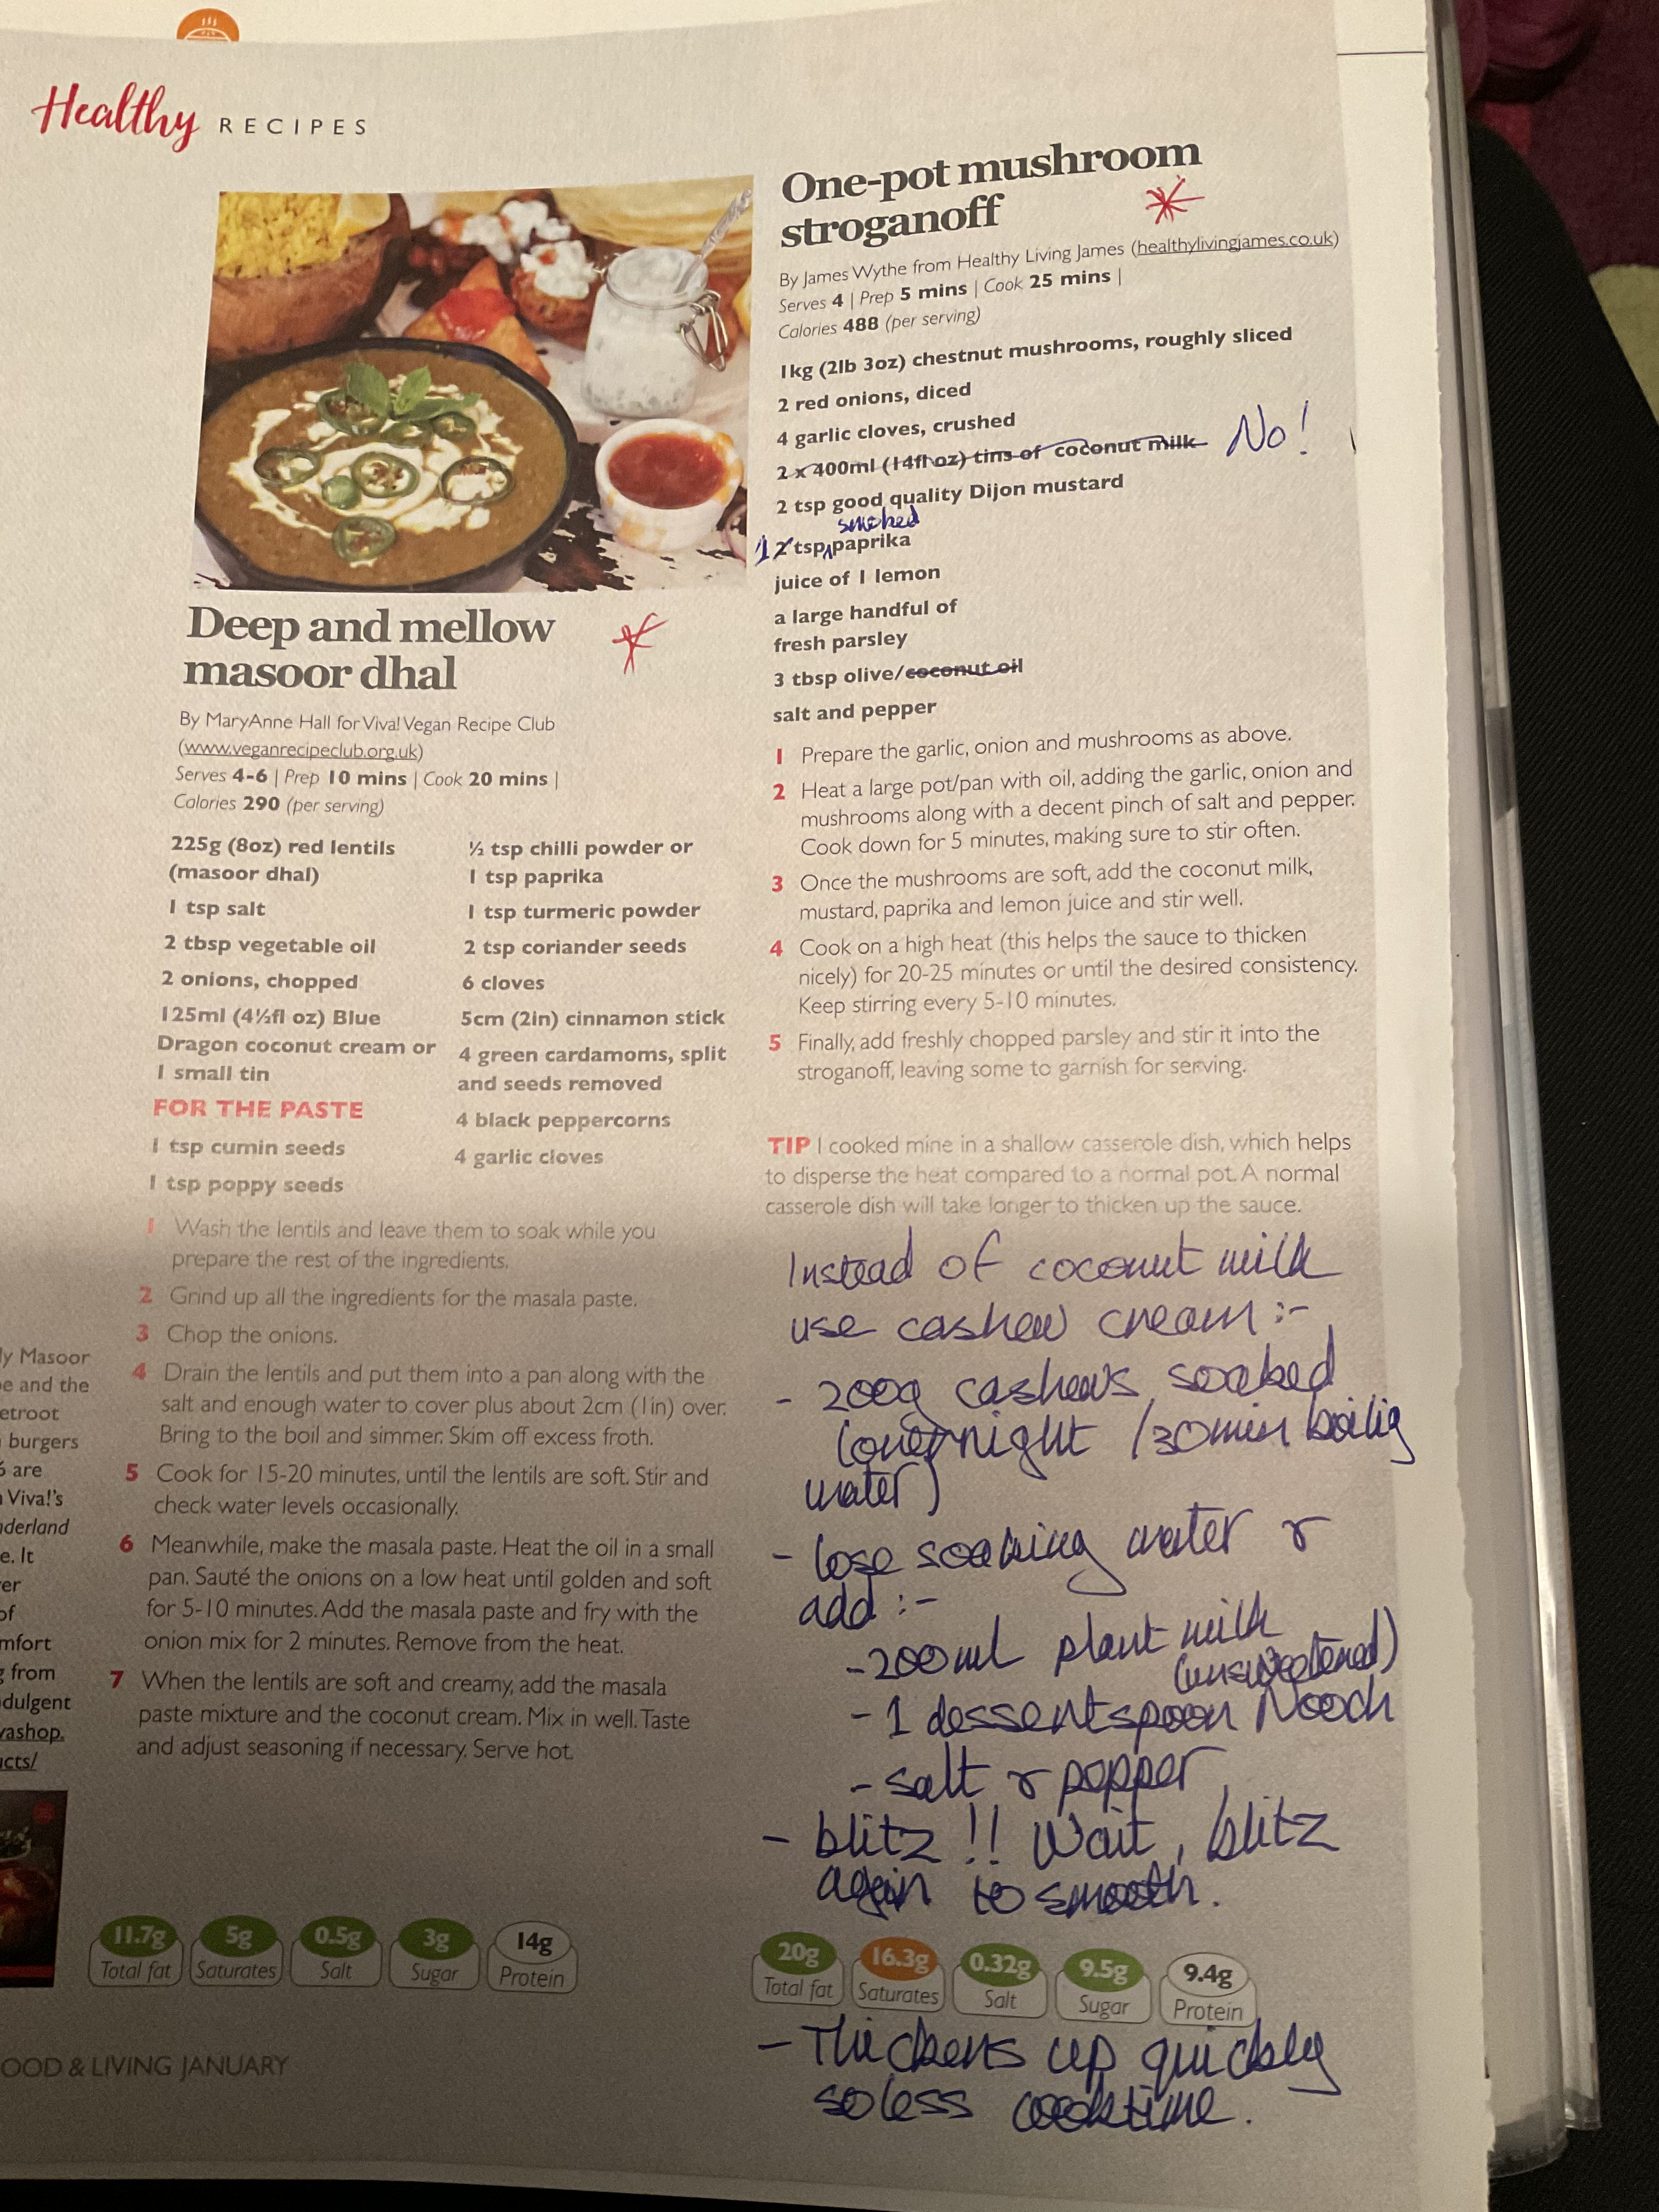 Healthy RECIPES
Deep and mellow
masoor dhal
By MaryAnne Hall for Viva! Vegan Recipe Club
(www.veganrecipeclub.org.uk)
Serves 4-6 | Prep 10 mins | Cook 20 mins |
Calories 290 (per serving)
225g (8oz) red lentils
(masoor dhal)
1 tsp salt
2 tbsp vegetable oil
2 onions, chopped
125ml (4½fl oz) Blue
Dragon coconut cream or
1 small tin
FOR THE PASTE
1 tsp cumin seeds
1 tsp poppy seeds
½ tsp chilli powder or
1 tsp paprika
1 tsp turmeric powder
2 tsp coriander seeds
6 cloves
5cm (2in) cinnamon stick
4 green cardamoms, split
and seeds removed
4 black peppercorns
4 garlic cloves
1 Wash the lentils and leave them to soak while you
prepare the rest of the ingredients.
2 Grind up all the ingredients for the masala paste.
3 Chop the onions.
4 Drain the lentils and put them into a pan along with the
salt and enough water to cover plus about 2cm (1in) over.
Bring to the boil and simmer. Skim off excess froth.
5 Cook for 15-20 minutes, until the lentils are soft. Stir and
check water levels occasionally.
6 Meanwhile, make the masala paste. Heat the oil in a small
pan. Sauté the onions on a low heat until golden and soft
for 5-10 minutes. Add the masala paste and fry with the
onion mix for 2 minutes. Remove from the heat.
7 When the lentils are soft and creamy, add the masala
paste mixture and the coconut cream. Mix in well. Taste
and adjust seasoning if necessary. Serve hot.
11.7g 5g 0.5g 3g 14g
Total fat Saturates Salt Sugar Protein
One-pot mushroom
stroganoff
By James Wythe from Healthy Living James (healthylivingjames.co.uk)
Serves 4 | Prep 5 mins | Cook 25 mins |
Calories 488 (per serving)
1kg (2lb 3oz) chestnut mushrooms, roughly sliced
2 red onions, diced
4 garlic cloves, crushed
2 x 400ml (14fl oz) tins of coconut milk No!
2 tsp good quality Dijon mustard
smoked
1 2 tsp paprika
juice of 1 lemon
a large handful of
fresh parsley
3 tbsp olive/coconut oil
salt and pepper
1 Prepare the garlic, onion and mushrooms as above.
2 Heat a large pot/pan with oil, adding the garlic, onion and
mushrooms along with a decent pinch of salt and pepper.
Cook down for 5 minutes, making sure to stir often.
3 Once the mushrooms are soft, add the coconut milk,
mustard, paprika and lemon juice and stir well.
4 Cook on a high heat (this helps the sauce to thicken
nicely) for 20-25 minutes or until the desired consistency.
Keep stirring every 5-10 minutes.
5 Finally, add freshly chopped parsley and stir it into the
stroganoff, leaving some to garnish for serving.
TIP I cooked mine in a shallow casserole dish, which helps
to disperse the heat compared to a normal pot. A normal
casserole dish will take longer to thicken up the sauce.
Instead of coconut milk
use cashew cream :-
- 200g cashews soaked
(overnight /30min boilig
water)
- lose soaking water &
add :-
- 200ml plant milk
(unsweetened)
- 1 dessertspoon Nooch
- salt & pepper
- blitz !! Wait, blitz
again to smooth.
20g 16.3g 0.32g 9.5g 9.4g
Total fat Saturates Salt Sugar Protein
- Thickens up quickly
so less cooktime.
ly Masoor
e and the
etroot
burgers
are
Viva!'s
derland
e. It
er
of
mfort
from
dulgent
vashop.
cts/
OOD & LIVING JANUARY